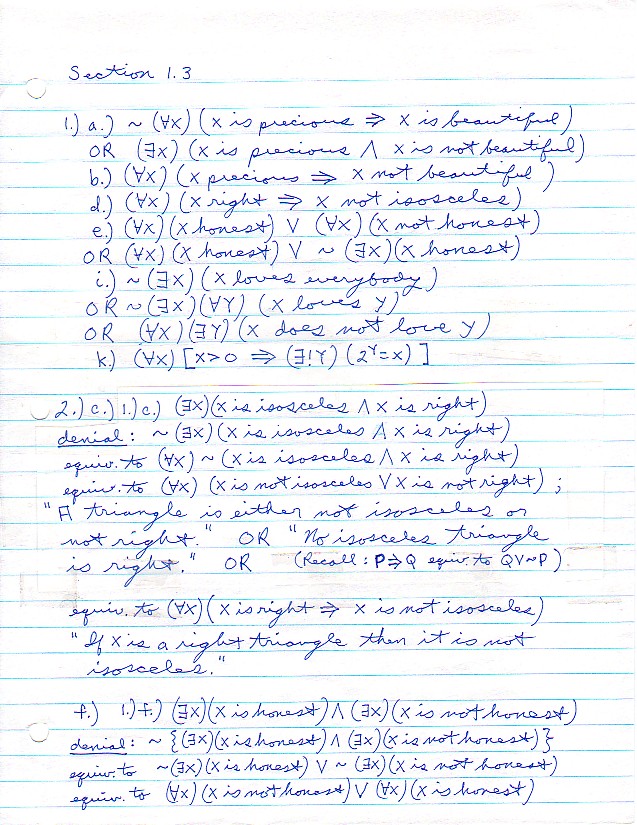 Section 1.3
1.) a.) ~ (∀x) (x is precious ⇒ x is beautiful)
OR (∃x) (x is precious ∧ x is not beautiful)
b.) (∀x) (x precious ⇒ x not beautiful)
d.) (∀x) (x right ⇒ x not isosceles)
e.) (∀x) (x honest) ∨ (∀x) (x not honest)
OR (∀x) (x honest) ∨ ~ (∃x) (x honest)
i.) ~ (∃x) (x loves everybody)
OR ~ (∃x) (∀y) (x loves y)
OR (∀x) (∃y) (x does not love y)
k.) (∀x) [x>0 ⇒ (∃!y) (2^y = x) ]
2.) c.) 1.) c.) (∃x) (x is isosceles ∧ x is right)
denial: ~ (∃x) (x is isosceles ∧ x is right)
equiv. to (∀x) ~ (x is isosceles ∧ x is right)
equiv. to (∀x) (x is not isosceles ∨ x is not right) ;
"A triangle is either not isosceles or
not right." OR "No isosceles triangle
is right." OR (Recall: P⇒Q equiv. to Q∨~P)
equiv. to (∀x) (x is right ⇒ x is not isosceles)
"If x is a right triangle then it is not
isosceles."
f.) 1.) f.) (∃x) (x is honest) ∧ (∃x) (x is not honest)
denial: ~ {(∃x) (x is honest) ∧ (∃x) (x is not honest)}
equiv. to ~(∃x) (x is honest) ∨ ~ (∃x) (x is not honest)
equiv. to (∀x) (x is not honest) ∨ (∀x) (x is honest)